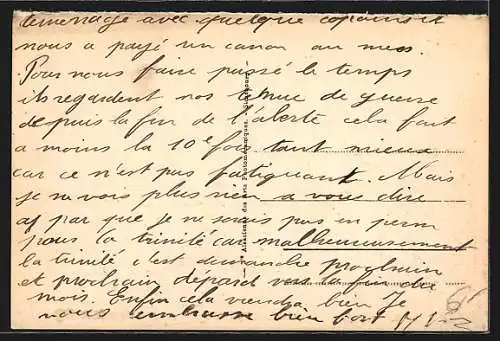 demenagé avec quelque copains et
nous a payé un canon au mess.
Pour nous faire passé le temps
ils regardent nos tenue de guerre
depuis la fin de l'alerte cela fait
a moins la 10e fois tant mieux
car ce n'est pas fatiguant. Mais
je ne vois plus rien a vous dire
a part que je ne serais pas en perm
pour la trinité car malheureusement
la trinité c'est dimanche prochain
et prochain départ vers la fin du
mois. Enfin cela viendra bien Je
vous embrasse bien fort